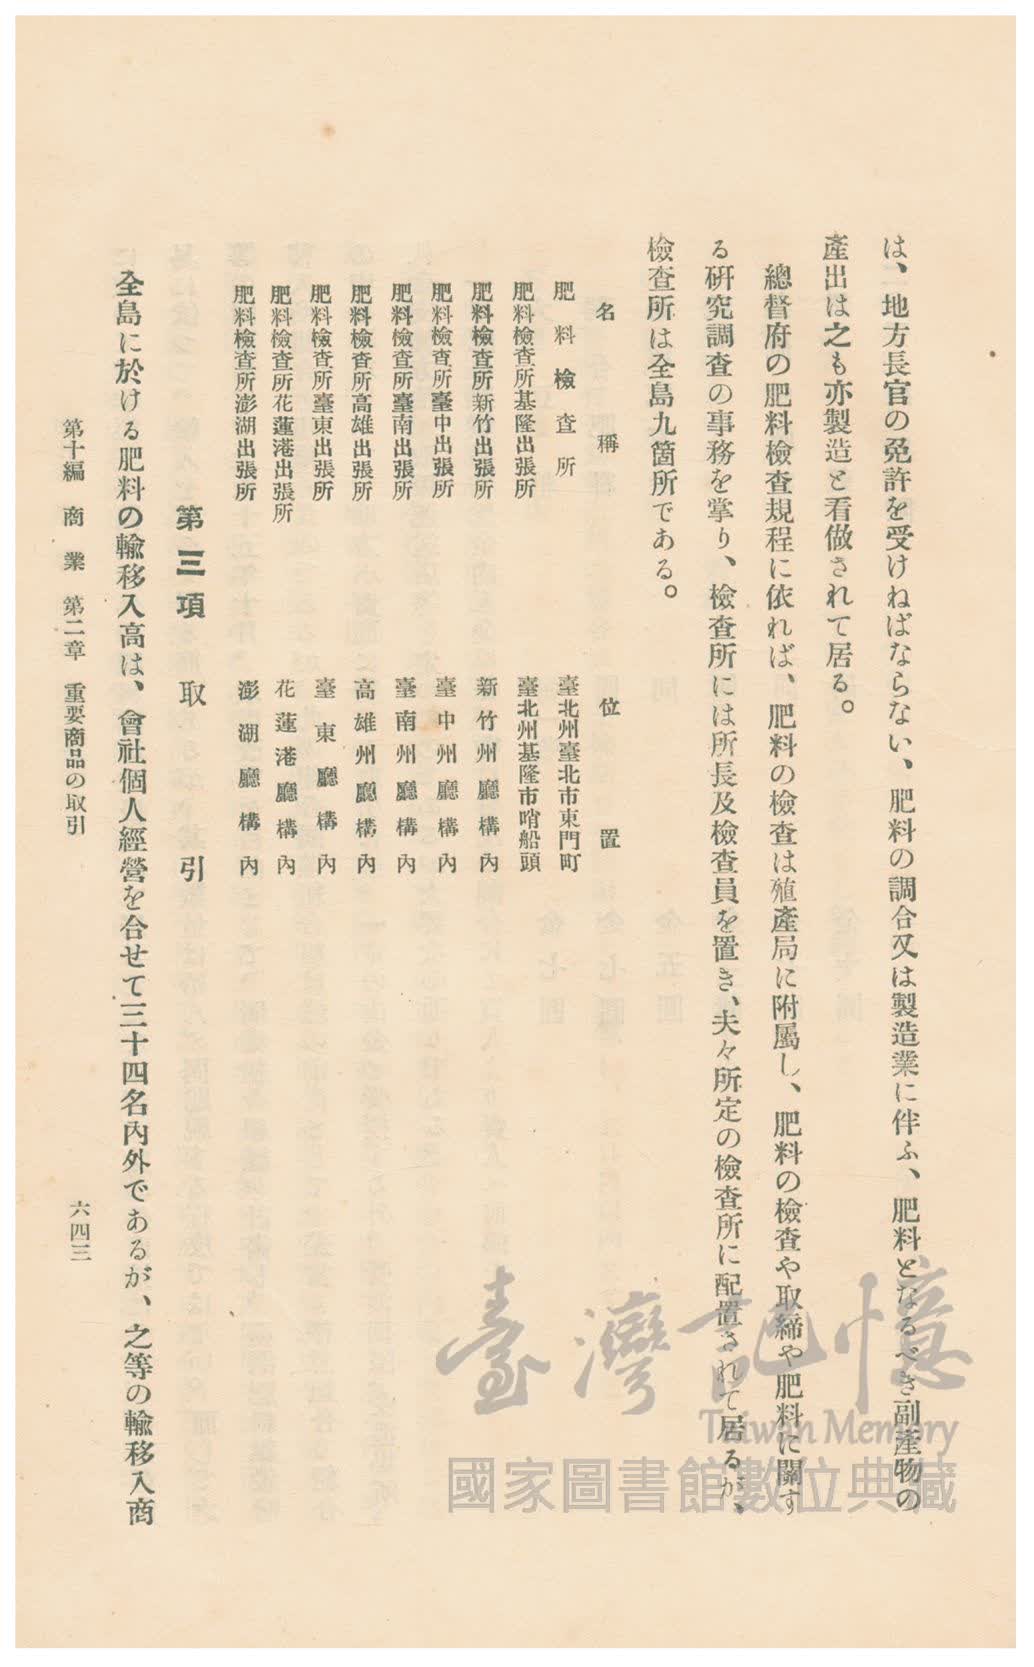 は、地方長官の免許を受けねばならない、肥料の調合又は製造業に伴ふ、肥料となるべき副産物の
產出は之も亦製造と看做されて居る。
總督府の肥料檢查規程に依れば、肥料の檢查は殖產局に附屬し、肥料の檢查や取締や肥料に關す
る硏究調查の事務を掌り、檢查所には所長及檢查員を置き、夫々所定の檢查所に配置されて居るが、
檢查所は全島九箇所である。
名稱 位置
肥料檢查所 臺北州臺北市東門町
肥料檢查所基隆出張所 臺北州基隆市哨船頭
肥料檢查所新竹出張所 新竹州廳構內
肥料檢查所臺中出張所 臺中州廳構內
肥料檢查所臺南出張所 臺南州廳構內
肥料檢查所高雄出張所 高雄州廳構內
肥料檢查所臺東出張所 臺東廳構內
肥料檢查所花蓮港出張所 花蓮港廳構內
肥料檢查所澎湖出張所 澎湖廳構內
第三項 取引
全島に於ける肥料の輸移入高は、會社個人經營を合せて三十四名內外であるが、之等の輸移入商
第十編 商業 第二章 重要商品の取引
六四三
臺灣記憶
Taiwan Memory
國家圖書館數位典藏